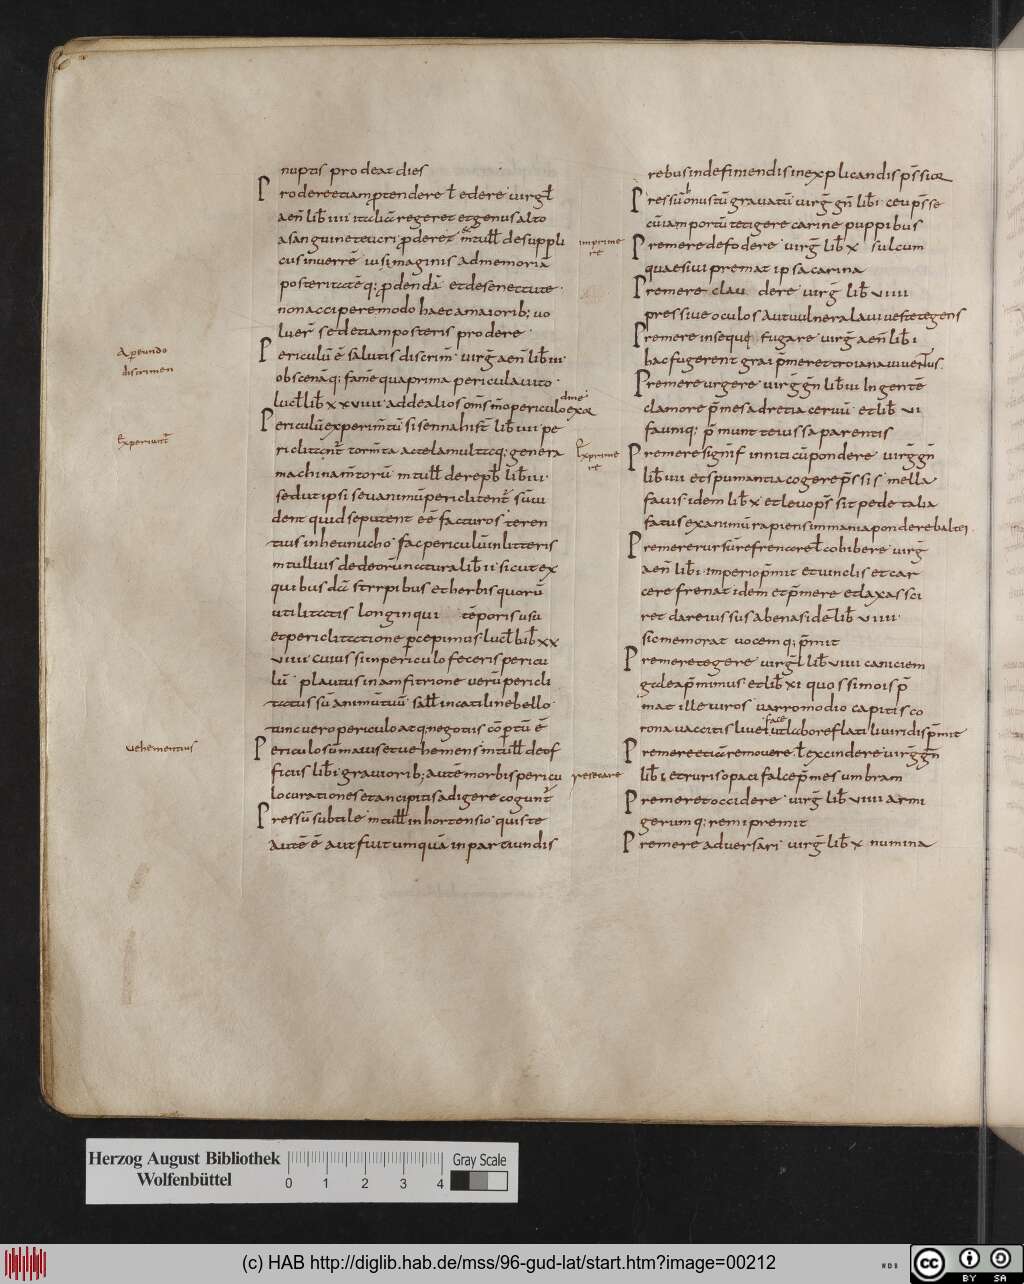 nuptis prodeat dies
Prodere etiam p̄tendere ł edere uirgł
aen̄ lib̄ iiii italiā regeret et genus alto
a sanguine teucri ꝓderet m̄ tułł de suppli
cus in uerrē ius imaginis ad memoriā
posteritatēq; ꝓdendā et de senectute
non accipere modo haec a maiorib; uo
luer̄ sed etiam posteris prodere
Periculū ē salutis discrim̄ uirḡ aen̄ lib̄ iii
obscenāq; famē quaprima pericula uito
lucł lib̄ xxviiii addealios om̄s m̄o periculo exor
dme
Periculū experim̄tū sisennahist̄ lib̄ iiii pe
riclitant̄ torm̄ta actela multaq; genera
machinam̄torū m tułł de rep̄b̄ lib̄ iii
sed ut ipsi seu animū periclitent̄ sūm ui
dent quid se putent eē facturos teren
tius in heunucho fac periculū in litteris
m tullius de deorū natura lib̄ ii sicut ex
quibus dā strrpibus et herbis quorū
utilitatis longinqui tēporis usu
et periclitatione ꝑcepimus lucł lib̄ xx
viiii cuius si in periculo feceris pericu
lū plautus in amfitrione uerū pericli
tatus sū animū tuū sałł in catiline bello
tunc uero periculo atq; negotiis cōp̄tū ē
Periculosū maius et uehemens m̄ tułł de of
ficiis lib̄ i grauiorib; autē morbis pericu
lo curationes et ancipitis adigere cogunt̄
Pressū subtile m̄ tułł in hortensio quis te
autē ē aut fuit umquā in partiundis
Aperiundo
discrimen
Experiunt̄
uehementius
rebus in definiendis in explicandis p̄ssior
Pressū onustū grauatū uirḡ ḡn̄ lib̄ i ceu p̄sse
cū iam portū tetigere carine puppibus
Premere defodere uirḡ lib̄ x sulcum
quaesiui premat ipsa carina
Premere clau dere uirḡ lib̄ viiii
pressiue oculos aut uulnera laui ueste tegens
Premere insequi fugare uirḡ aen̄ lib̄ i
hac fugerent grai p̄meret troiana iuuentus
Premere urgere uirḡ ḡn̄ lib̄ iii ingentē
clamore p̄mes ad retia ceruū et lib̄ vi
faucinq; p̄munt te iussa parentis
Premere signif̄ inniti cū pondere uirḡ ḡn̄
lib̄ iiii et spumantia cogere p̄ssis mella
fauis idem lib̄ x et leuo p̄ssit pede talia
fatus exanimū rapiens immania pondere baltei
Premere rursū refrenare ł cohibere uirḡ
aen̄ lib̄ i imperio p̄mit et uinclis et car
cere frenat idem et p̄mere et laxas sci
ret dare iussus abenas ide lib̄ viiii
sic memorat uocemq; p̄mit
Premere tegere uirḡł lib̄ viiii caniciem
galea p̄mimus et lib̄ xi quos simois p̄
mat ille uiros uarromodio capitis co
rona uaccitis liue i ut labore flati liuiridis p̄mit
face
Premere etiā remouere ł excindere uirḡ ḡn̄
lib̄ i et ruris opaci falce p̄mes umbram
Premeret occidere uirḡ lib̄ viiii armi
gerumq; remi premit
Premere aduersari uirḡ lib̄ x numina
imprime
re
Exprime
re
resecare
Herzog August Bibliothek
Wolfenbüttel
0 1 2 3 4
Gray Scale
(c) HAB http://diglib.hab.de/mss/96-gud-lat/start.htm?image=00212
WDB
cc BY SA